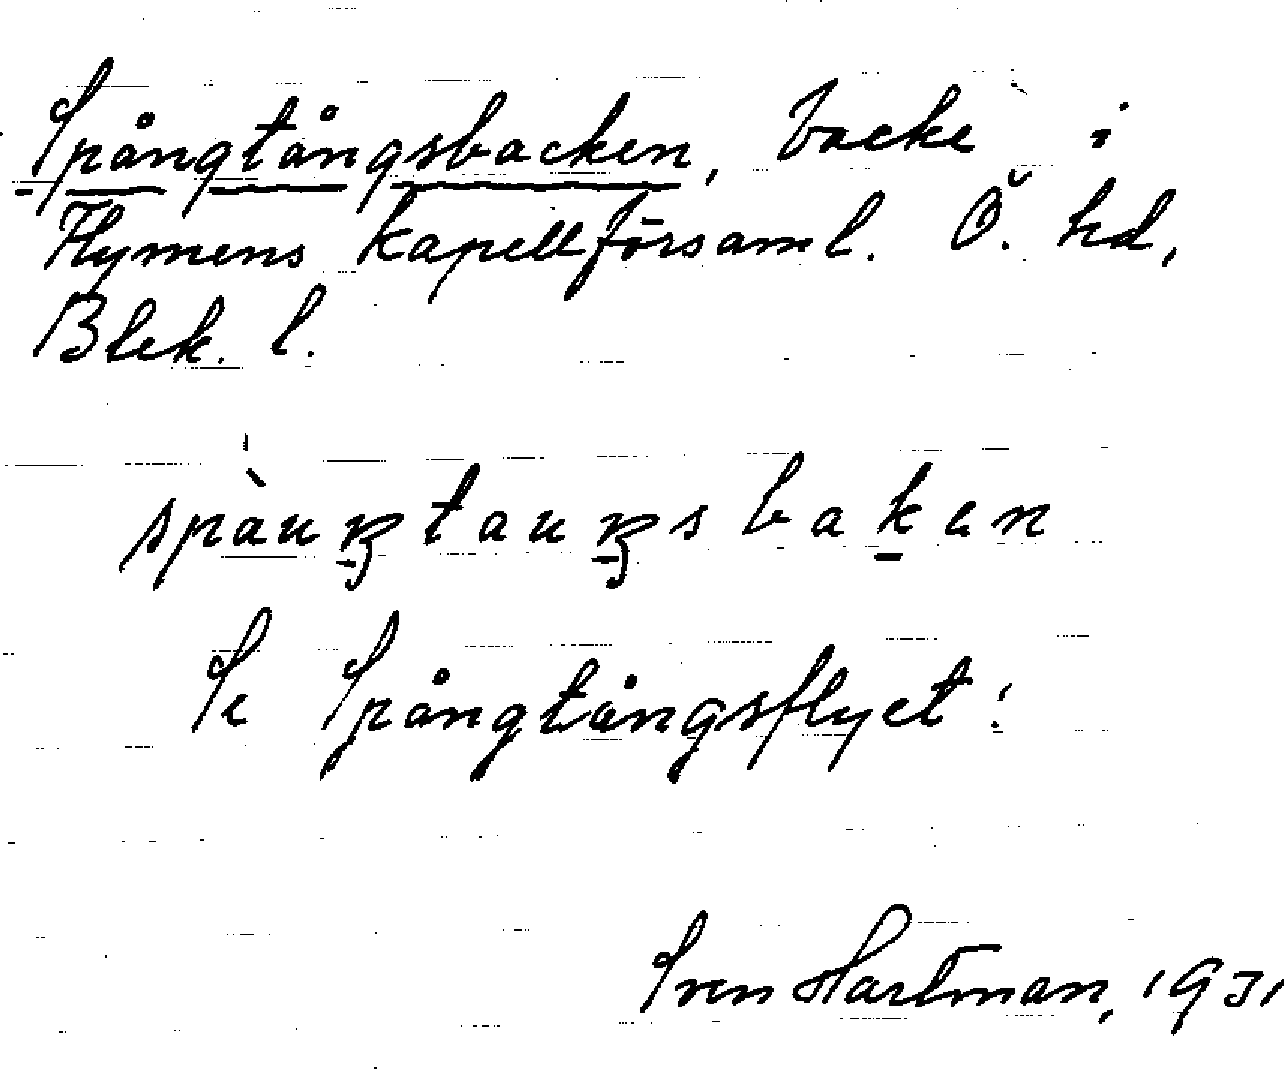 Spångtångsbacken, backe i
Flymens kapellförsaml. Ö. hd,
Blek. l.
Se Spångtångsflyet!
Sven Hartman, 1931